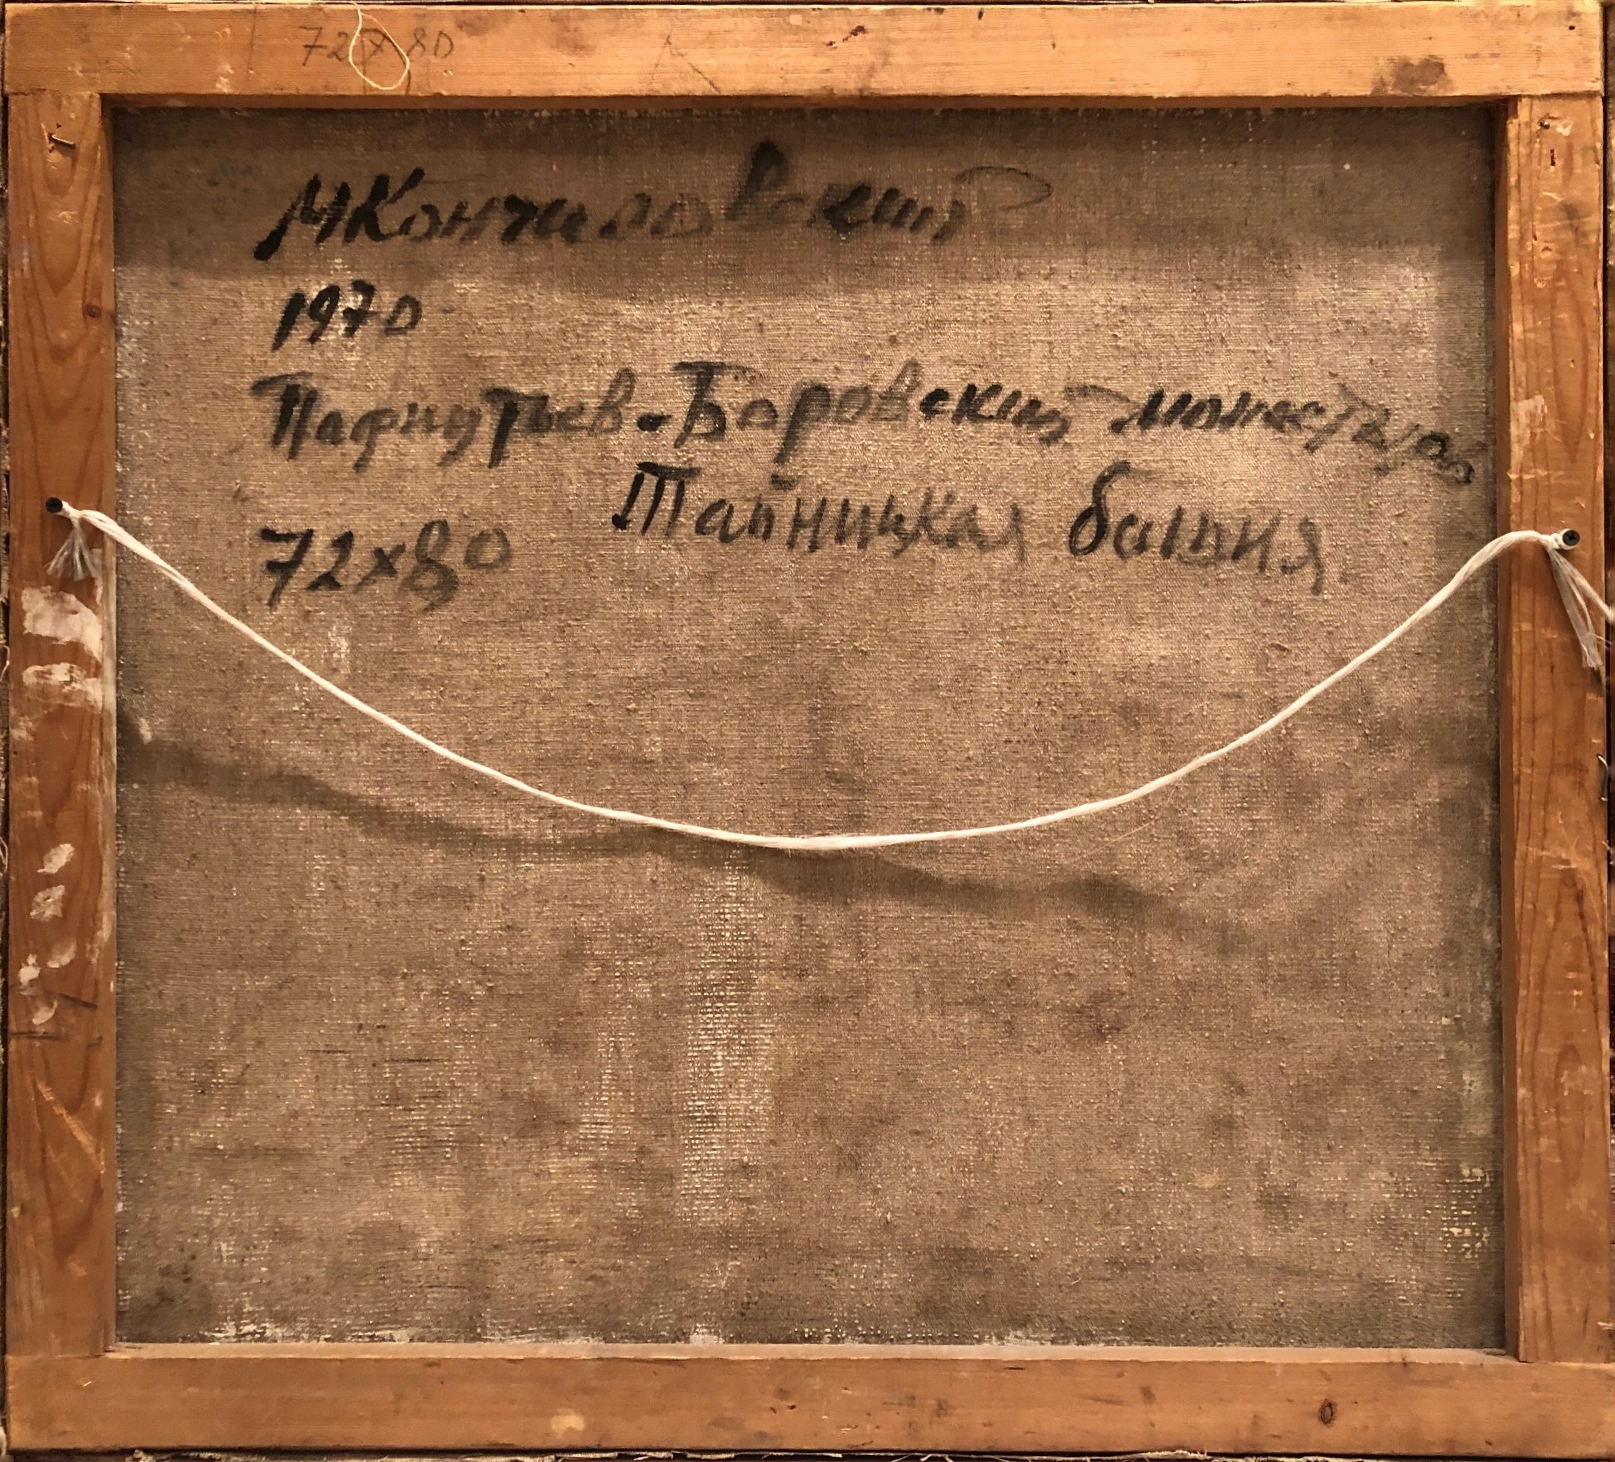 72x80
МКончаловский
1970
Пафнутьев-Боровский монастырь
Тайницкая башня
72x80